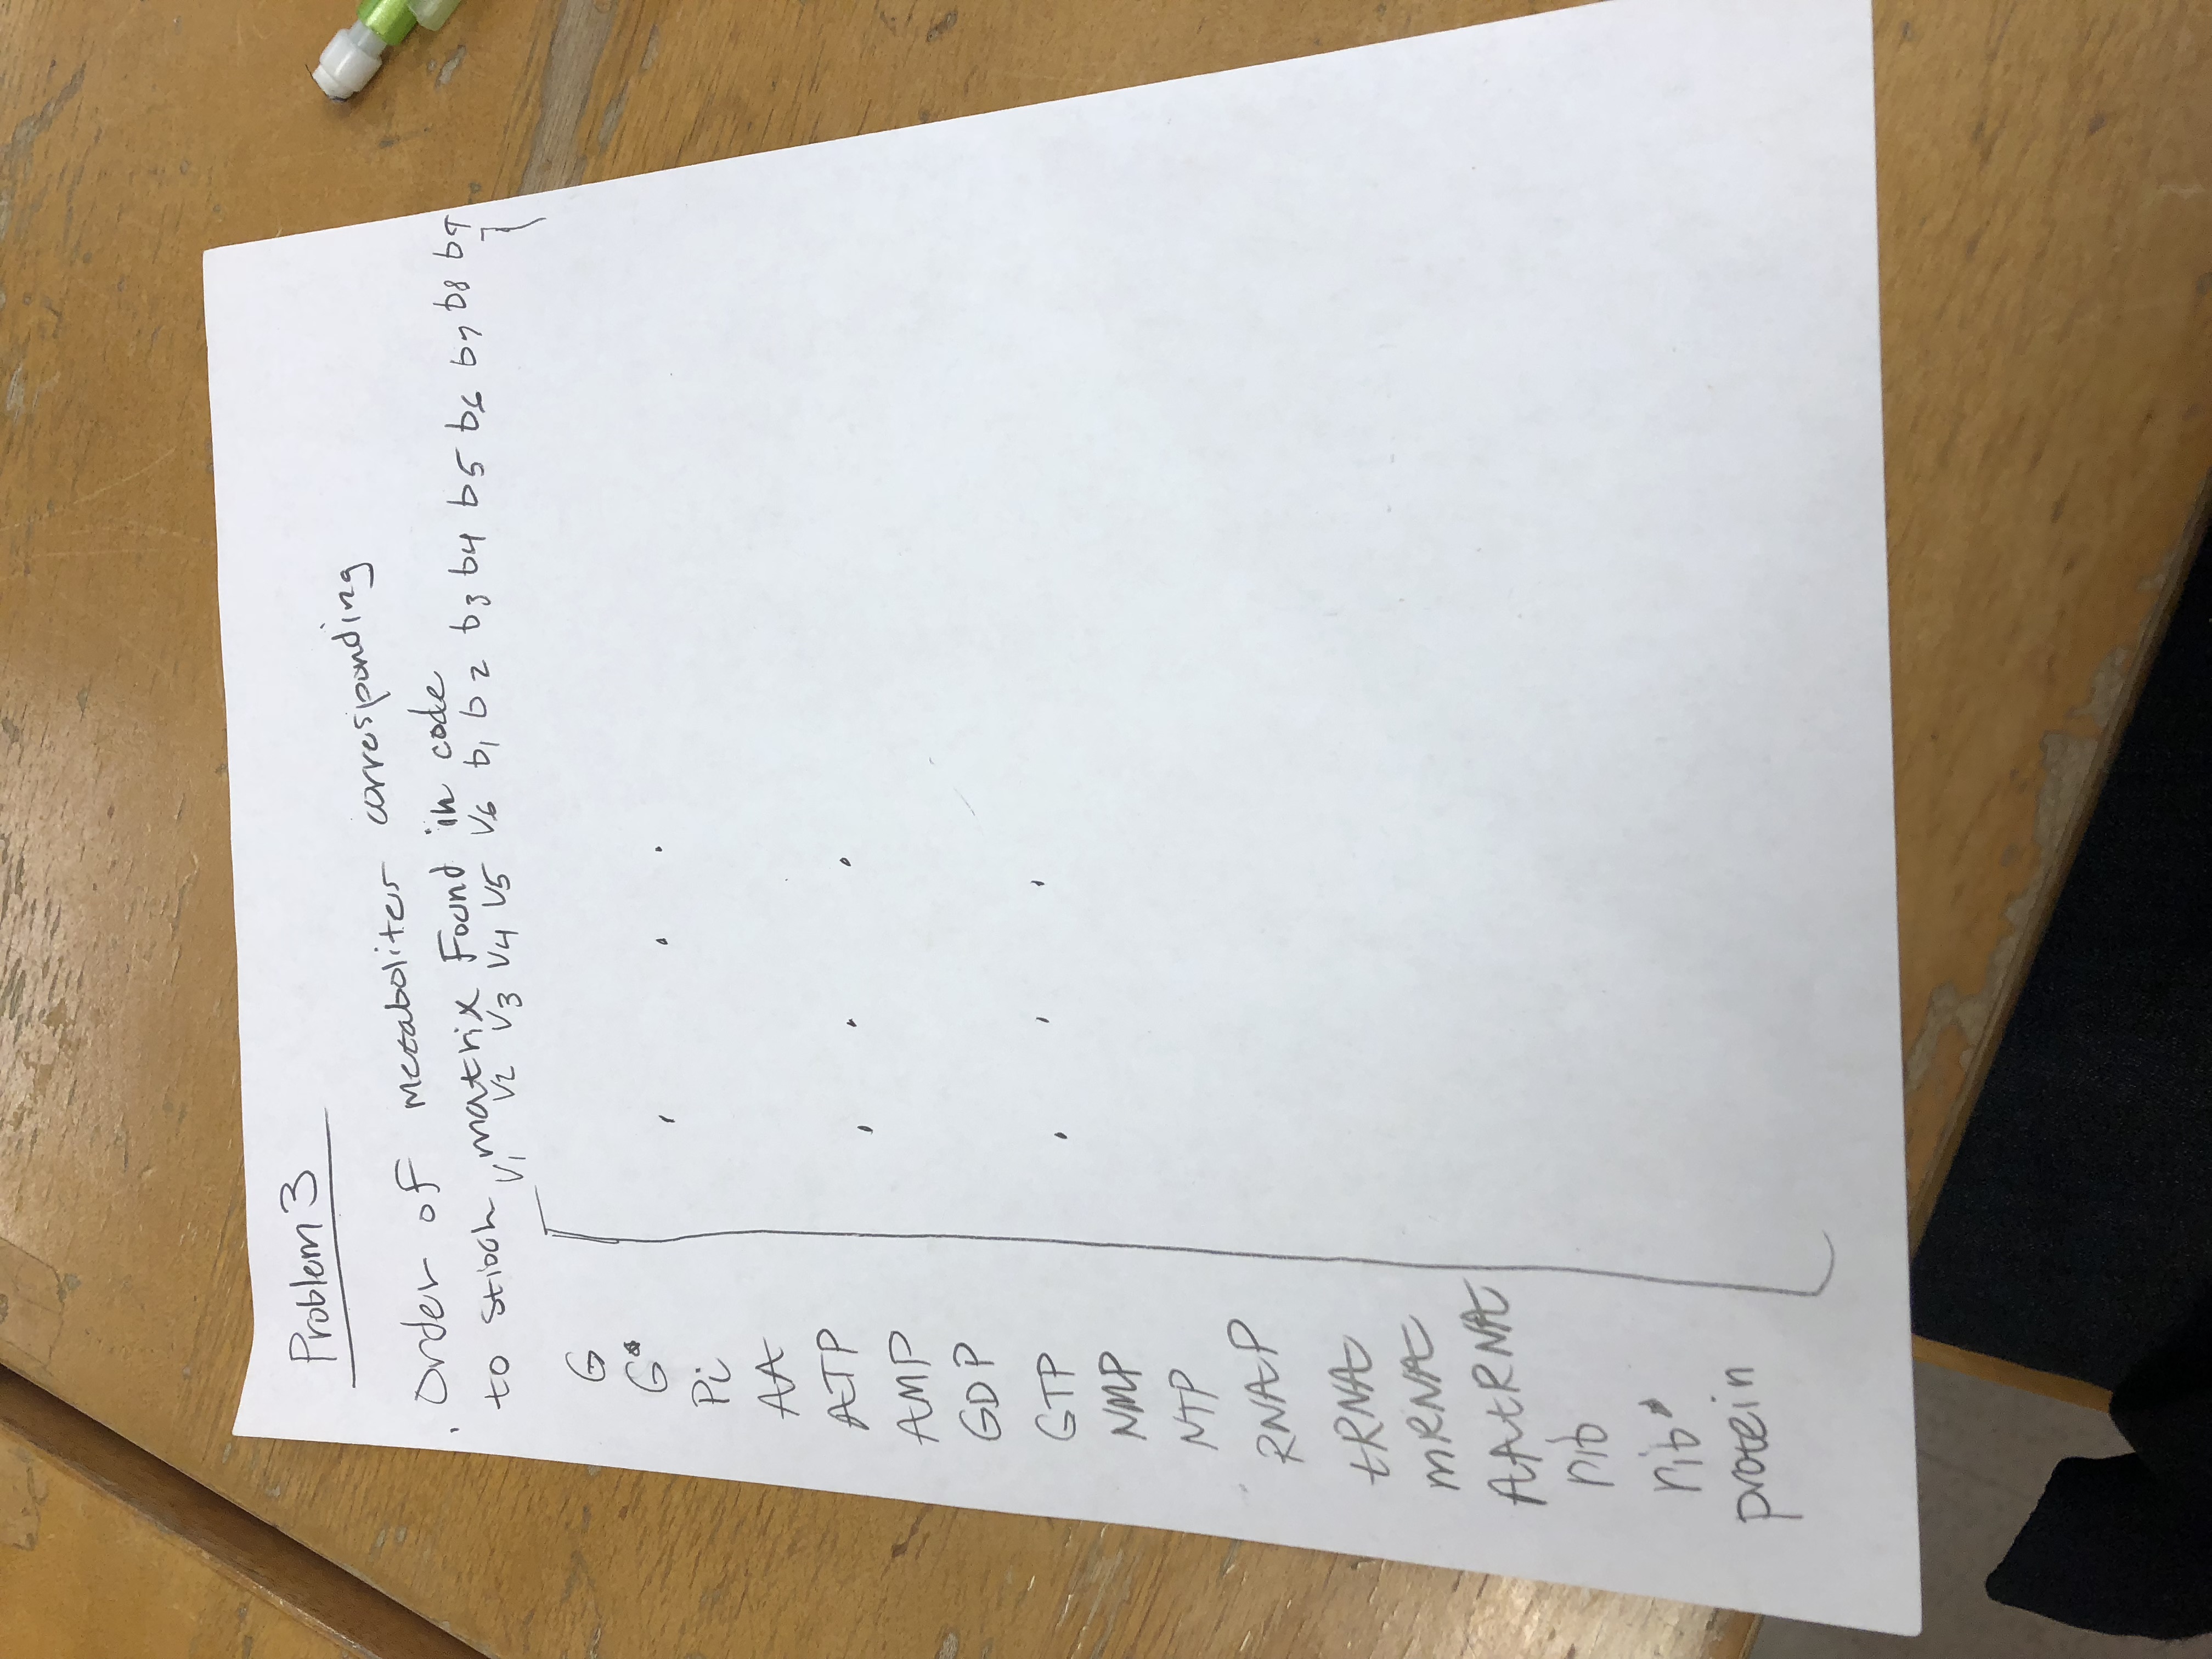 Problem 3
. Order of metaboliter corresponding
to stioch matrix Found in code
V1 V2 V3 V4 V5 V6 b1 b2 b3 b4 b5 b6 b7 b8 b9
G
G*
Pi
AA
ATP
AMP
GDP
GTP
NMP
NTP
RNAP
tRNA
mRNA
AAtRNA
rib
rib*
protein